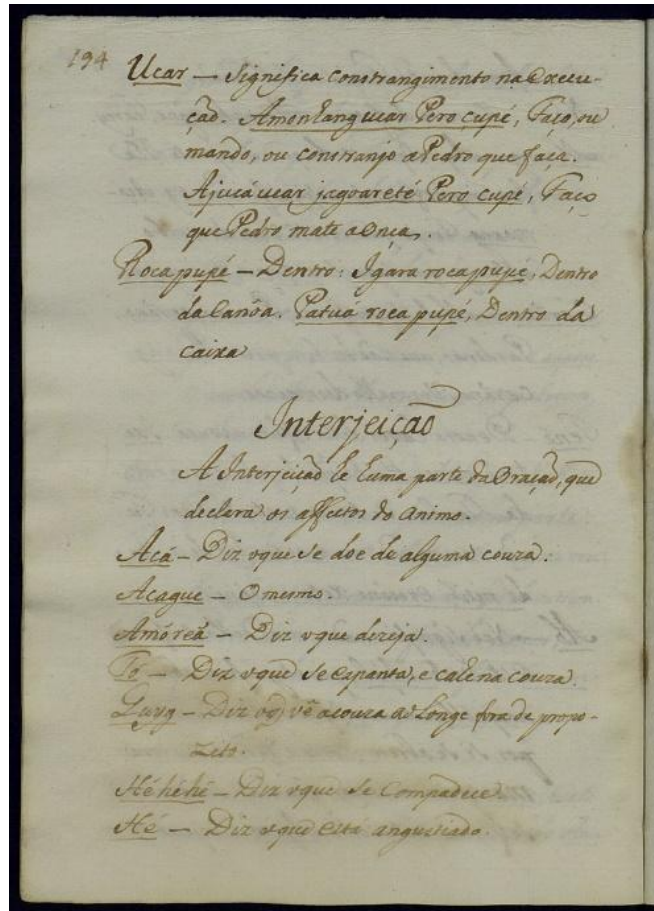 194
Ucar — Significa constrangimento na Execu-
çaõ. Amonhang ucar Pero çupé, Faço, ou
mando, ou constranjo a Pedro que faça.
Ajucá ucar jagoareté Pero çupé, Faço
que Pedro mate a Onça.
Rocapupé — Dentro: Igara rocapupe, Dentro
da Canôa. Patuá roca pupé, Dentro da
caixa
Interjeiçaõ
A Interjeiçaõ he huma parte da Oraçaõ, que
declara os affectos do animo.
Acá — Diz oque se doe de alguma couza.
Acague — O mesmo.
Amóreá — Diz oque dezeja.
Tó — Diz oque se espanta, e cahe na couza.
— Diz oq̃ vê a couza ao Longe fora de propo-
zito.
Héhéhé — Diz oque se Compadece.
Hé — Diz oque está angustiado.